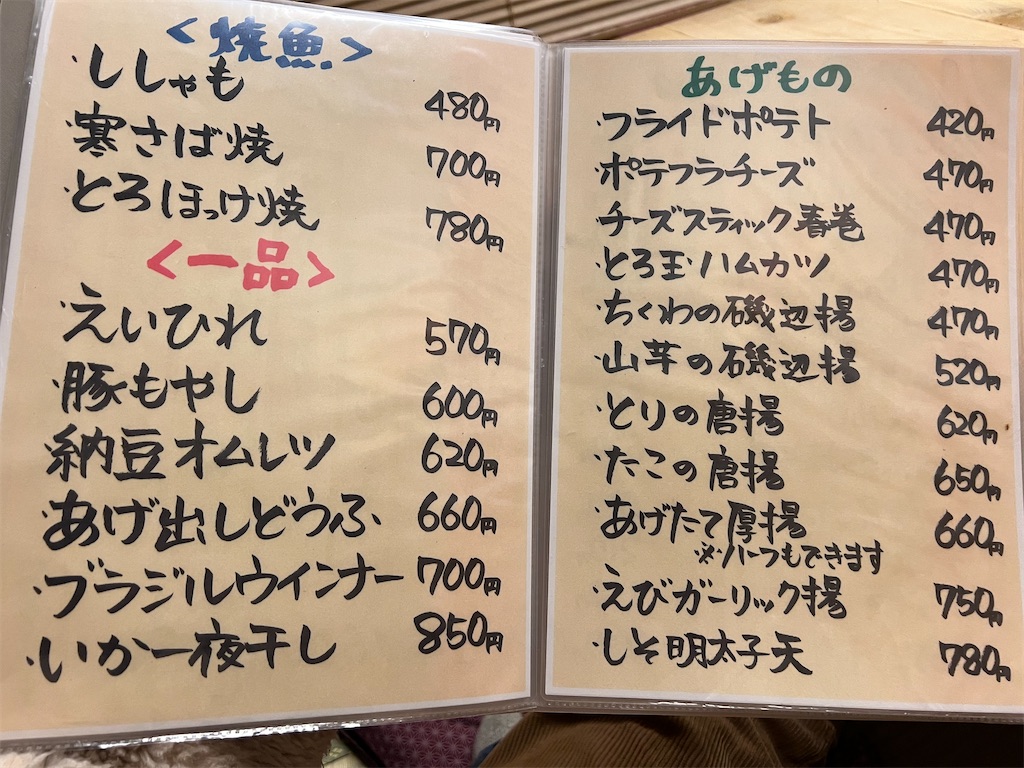 <焼魚>
・ししゃも 480円
・寒さば焼 700円
・とろほっけ焼 780円
<一品>
・えいひれ 570円
・豚もやし 600円
・納豆オムレツ 620円
・あげ出しどうふ 660円
・ブラジルウインナー 700円
・いか一夜干し 850円
あげもの
・フライドポテト 420円
・ポテフラチーズ 470円
・チーズスティック春巻 470円
・とろ玉ハムカツ 470円
・ちくわの磯辺揚 470円
・山芋の磯辺揚 520円
・とりの唐揚 620円
・たこの唐揚 650円
・あげたて厚揚 660円
※ハーフもできます
・えびガーリック揚 750円
・しそ明太子天 780円